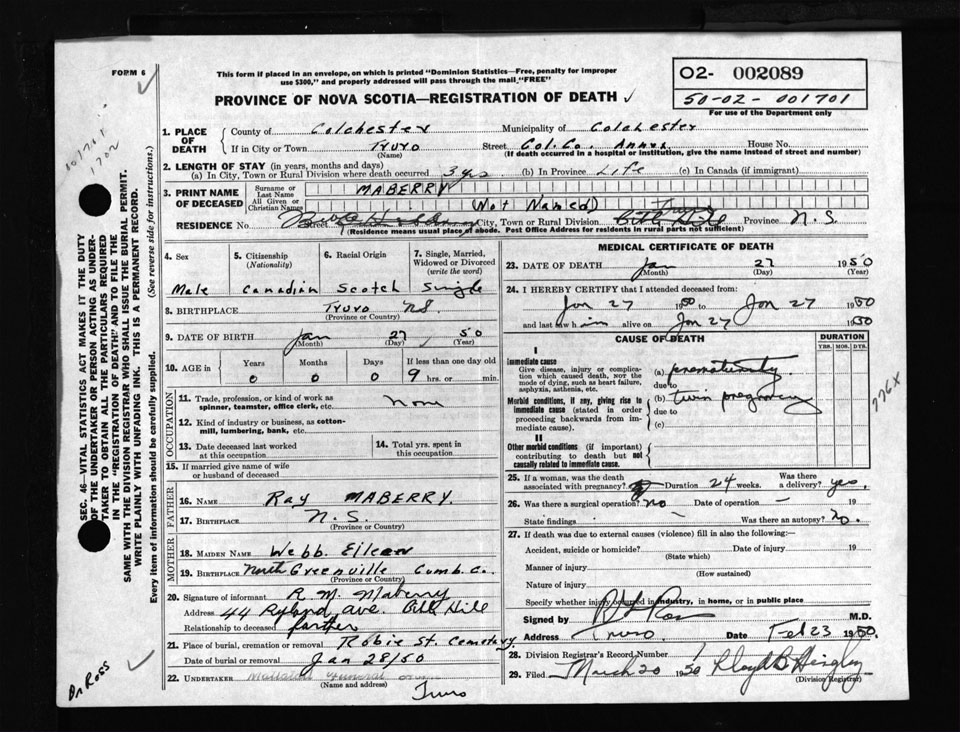 FORM 6
This form if placed in an envelope, on which is printed "Dominion Statistics—Free, penalty for improper
use $300," and properly addressed will pass through the mail "FREE"
PROVINCE OF NOVA SCOTIA—REGISTRATION OF DEATH
O2- 002089
50-02-001701
For use of the Department only
1. PLACE OF DEATH
County of Colchester Municipality of Colchester
If in City or Town Truro Street Col. Co. Annex House No.
(Name) (If death occurred in a hospital or institution, give the name instead of street and number)
2. LENGTH OF STAY (in years, months and days)
(a) In City, Town or Rural Division where death occurred 3 yrs (b) In Province Life (c) In Canada (if immigrant)
3. PRINT NAME OF DECEASED
Surname or Last Name MABERRY
All Given or Christian Names (Not Named)
RESIDENCE No Street City, Town or Rural Division Truro Province N.S.
(Residence means usual place of abode. Post Office Address for residents in rural parts not sufficient)
4. Sex
Male
5. Citizenship (Nationality)
Canadian
6. Racial Origin
Scotch
7. Single, Married, Widowed or Divorced (write the word)
Single
8. BIRTHPLACE Truro N.S.
(Province or Country)
9. DATE OF BIRTH Jan 27 50
(Month) (Day) (Year)
10. AGE in Years Months Days If less than one day old
0 0 0 9 hrs. or min.
OCCUPATION
11. Trade, profession, or kind of work as
spinner, teamster, office clerk, etc. None
12. Kind of industry or business, as cotton-
mill, lumbering, bank, etc.
13. Date deceased last worked
at this occupation
14. Total yrs. spent in
this occupation
15. If married give name of wife
or husband of deceased
FATHER
16. NAME Ray MABERRY
17. BIRTHPLACE N.S.
(Province or Country)
MOTHER
18. MAIDEN NAME Webb. Eileen
19. BIRTHPLACE North Greenville Cumb. Co.
(Province or Country)
20. Signature of informant R. M. Maberry
Address 44 Ryland Ave. Bible Hill
Relationship to deceased farther
21. Place of burial, cremation or removal Robie St. Cemetary
Date of burial or removal Jan 28/50
22. UNDERTAKER Funeral
(Name and address) Truro
MEDICAL CERTIFICATE OF DEATH
23. DATE OF DEATH Jan 27 1950
(Month) (Day) (Year)
24. I HEREBY CERTIFY that I attended deceased from:
Jan 27 1950 to Jan 27 1950
and last saw him alive on Jan 27 1950
CAUSE OF DEATH
DURATION
YRS. MOS. DYS.
I
Immediate cause
Give disease, injury or complica-
tion which caused death, not the
mode of dying, such as heart failure,
asphyxia, asthenia, etc.
(a) prematurity.
due to
Morbid conditions, if any, giving rise to
immediate cause (stated in order
proceeding backwards from im-
mediate cause).
(b) twin pregnancy
due to
(c)
II
Other morbid conditions (if important)
contributing to death but not
causally related to immediate cause.
776X
25. If a woman, was the death Was there
associated with pregnancy? Duration 24 weeks. a delivery? yes.
26. Was there a surgical operation? no Date of operation — 19
State findings Was there an autopsy? no.
27. If death was due to external causes (violence) fill in also the following:—
Accident, suicide or homicide? Date of injury 19
(State which)
Manner of injury
(How sustained)
Nature of injury
Specify whether injury occurred in industry, in home, or in public place
Signed by Ross M.D.
Address Truro Date Feb 23 1950.
28. Division Registrar's Record Number 1
29. Filed March 20 1950 Lloyd B
(Division Registrar)
SEC. 46—VITAL STATISTICS ACT MAKES IT THE DUTY
OF THE UNDERTAKER OR PERSON ACTING AS UNDER-
TAKER TO OBTAIN ALL THE PARTICULARS REQUIRED
IN THE "REGISTRATION OF DEATH" AND TO FILE THE
SAME WITH THE DIVISION REGISTRAR WHO SHALL ISSUE THE BURIAL PERMIT.
WRITE PLAINLY WITH UNFADING INK. THIS IS A PERMANENT RECORD.
Every item of information should be carefully supplied. (See reverse side for instructions.)
Dr Ross